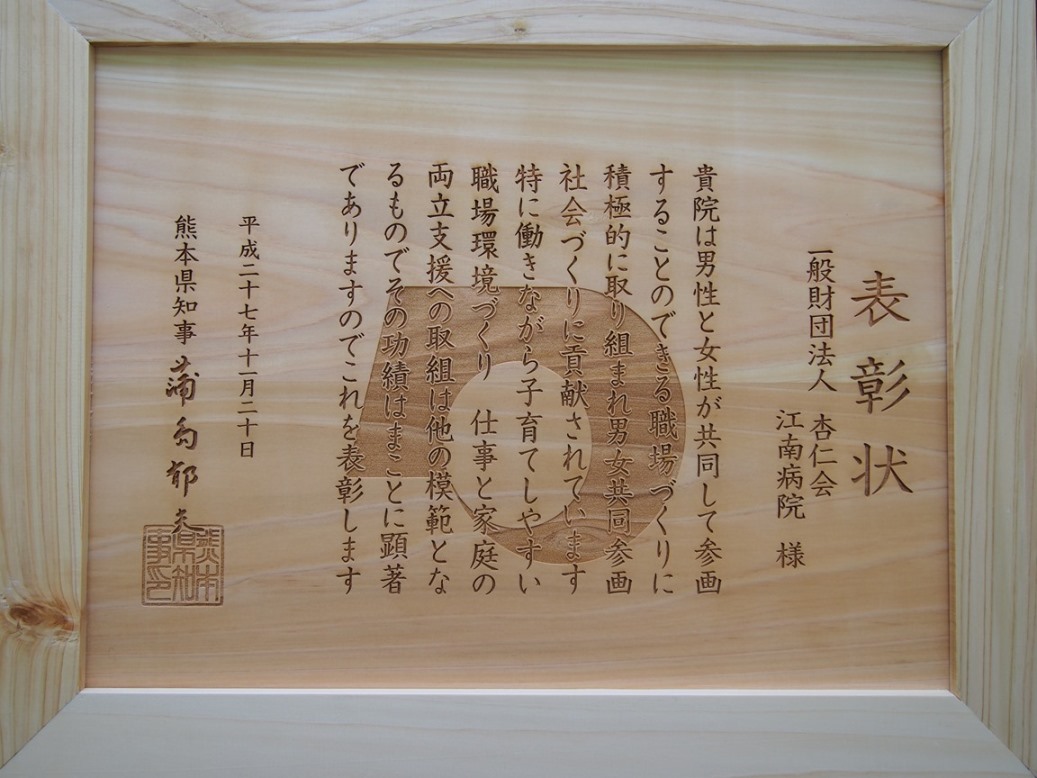 表彰状
一般財団法人 杏仁会
江南病院 様
貴院は男性と女性が共同して参画
することのできる職場づくりに
積極的に取り組まれ男女共同参画
社会づくりに貢献されています
特に働きながら子育てしやすい
職場環境づくり 仕事と家庭の
両立支援への取組は他の模範とな
るものでその功績はまことに顕著
でありますのでこれを表彰します
平成二十七年十一月二十日
熊本県知事 蒲島郁夫
熊本県知事印